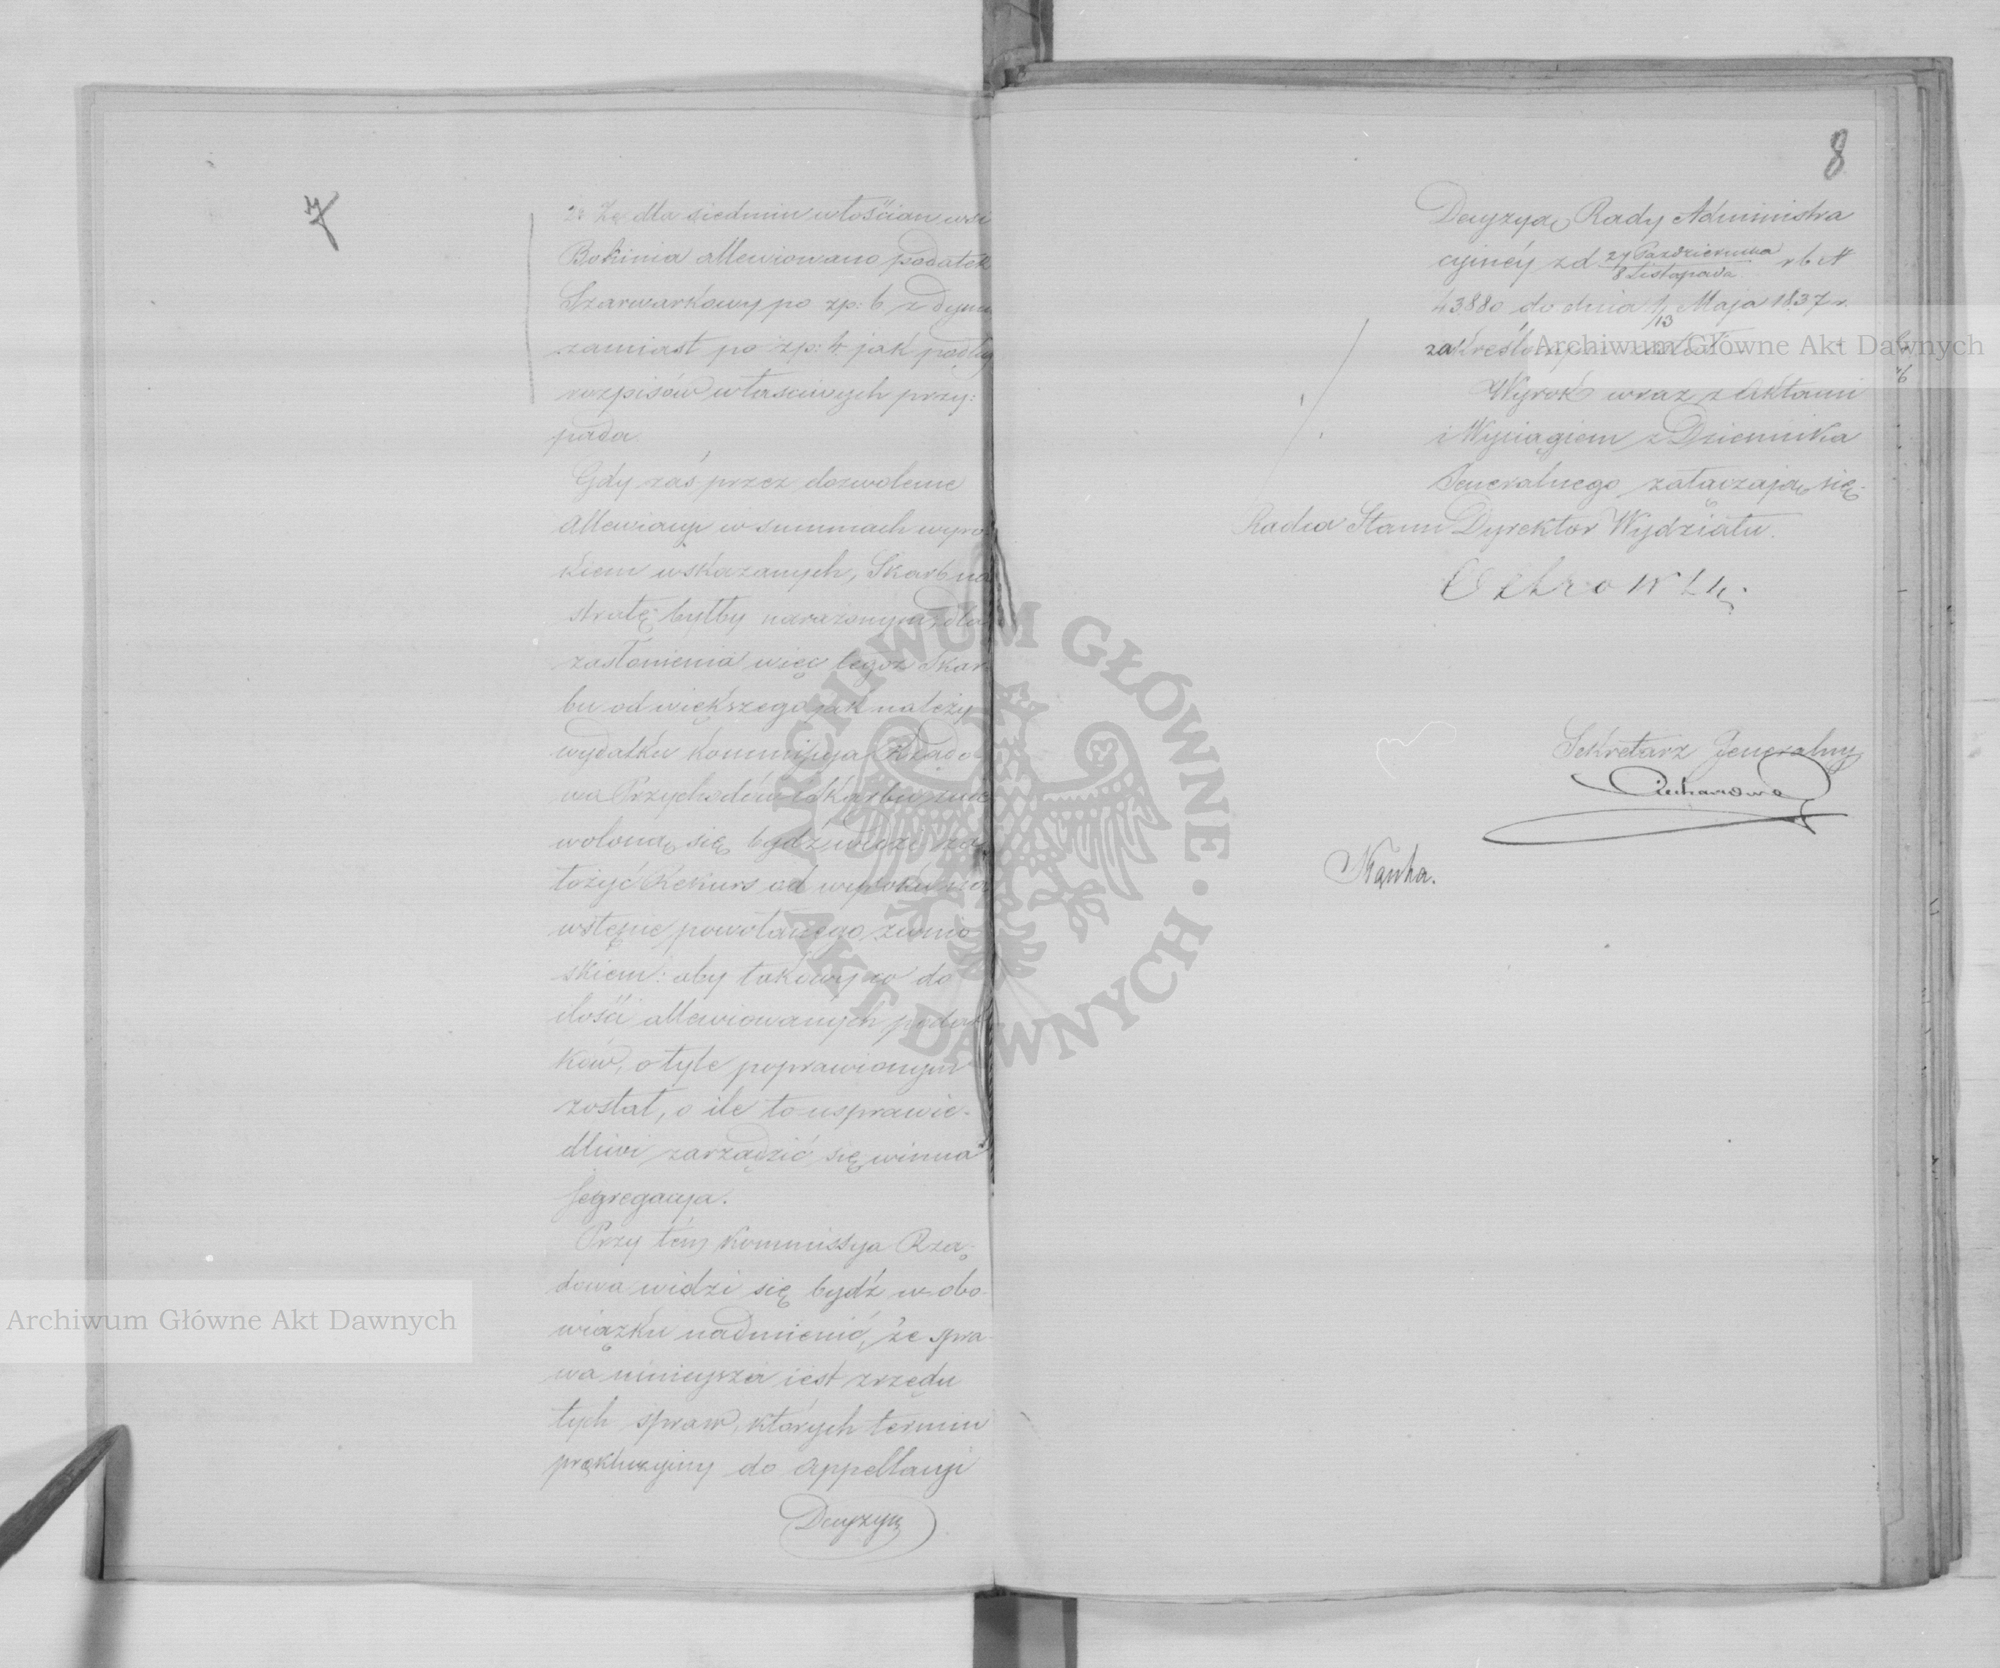 7
2º Że dla siedmiu włościan wsi
Bokinia allewiowano podatek
Szarwarkowy po zp: 6 z dymu,
zamiast po zp: 4 jak podług
rozpisów właściwych przy:
pada.
Gdy zaś przez dozwolenie
allewiacyi w summach wyro
kiem wskazanych, Skarb na
stratę byłby narażonym, dla
zasłonienia więc tegoż Skar
bu od większego jak należy
wydatku Kommissyja Rządo
wa Przychodów i Skarbu znie
woloną się bydź widzi za
łożyć Rekurs od wyroku na
wstępie powołanego z wnio
skiem: aby takowy co do
ilości allewiowanych podat
ków, o tyle poprawionym
został, o ile to usprawie-
dliwi zarządzić się winna
segregacya.
Przy tém Kommissya Rzą-
dowa widzi się bydź w obo
wiązku nadmienić, że spra
wa ninieysza iest z rzędu
tych spraw, których termin
prekluzyiny do appellacyi
Decyzyą
8
Decyzyą Rady Administra
cyinéy z d 27 Października / 8 Listopada r b N
43880 do dnia 1/13 Maja 1837 r.
zakreślonym został.
Wyrok wraz z Aktami
i Wyciągiem z Dziennika
Jeneralnego załączają się.
Radca Stanu Dyrektor Wydziału.
Sekretarz Jeneralny
ARCHIWUM GŁÓWNE AKT DAWNYCH
Archiwum Główne Akt Dawnych
Archiwum Główne Akt Dawnych